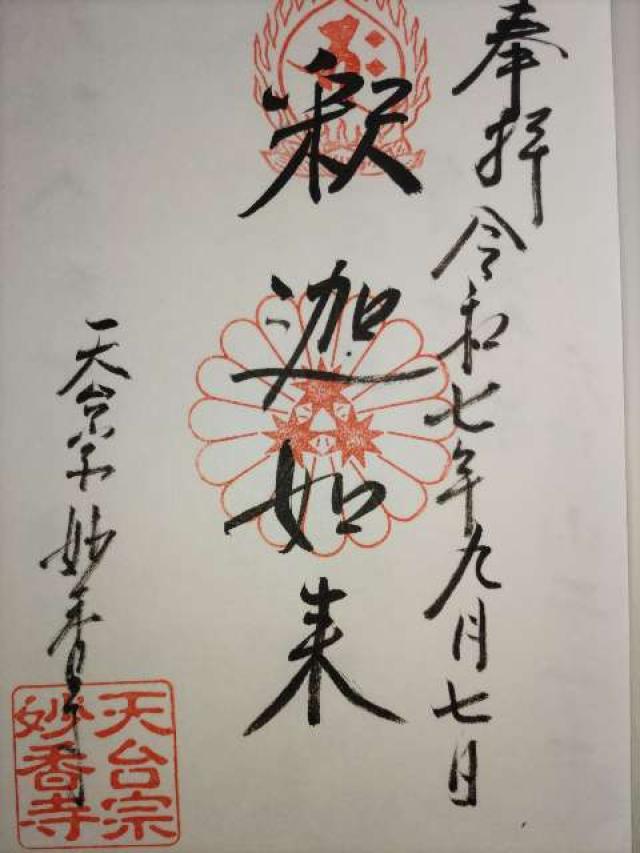 奉拝 令和七年九月七日
釈迦如来
天台宗 妙香寺
天台宗
妙香寺